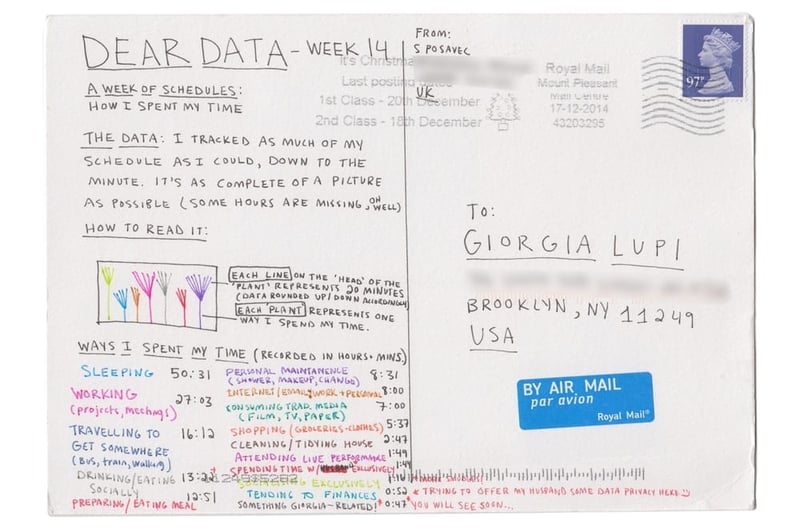 DEAR DATA - WEEK 14
A WEEK OF SCHEDULES:
HOW I SPENT MY TIME
THE DATA: I TRACKED AS MUCH OF MY
SCHEDULE AS I COULD, DOWN TO THE
MINUTE. IT'S AS COMPLETE OF A PICTURE
AS POSSIBLE (SOME HOURS ARE MISSING, OH WELL)
HOW TO READ IT:
EACH LINE ON THE 'HEAD' OF THE
'PLANT' REPRESENTS 20 MINUTES
(DATA ROUNDED UP/DOWN ACCORDINGLY)
EACH PLANT REPRESENTS ONE
WAY I SPEND MY TIME.
WAYS I SPENT MY TIME (RECORDED IN HOURS + MINS.)
SLEEPING 50:31
WORKING 27:03
(projects, meetings)
TRAVELLING TO 16:12
GET SOMEWHERE
(BUS, train, walking)
DRINKING/EATING 13:22
SOCIALLY
PREPARING/EATING MEAL 12:51
PERSONAL MAINTANENCE 8:31
(SHOWER, MAKEUP, CHANGE)
INTERNET/EMAIL/WORK+PERSONAL 8:00
CONSUMING TRAD. MEDIA 7:00
(FILM, TV, PAPER)
SHOPPING (GROCERIES+CLOTHES) 5:37
CLEANING/TIDYING HOUSE 2:47
ATTENDING LIVE PERFORMANCE 1:49
* SPENDING TIME W/ HUSBAND EXLUSIVELY 1:49
SOCIALISING EXCLUSIVELY 1:10
TENDING TO FINANCES 0:52
SOMETHING GIORGIA-RELATED! * 0:47
FROM:
S POSAVEC
UK
It's Christmas
Last posting dates
1st Class - 20th December
2nd Class - 18th December
Royal Mail
Mount Pleasant
Mail Centre
17-12-2014
43203295
97P
TO:
GIORGIA LUPI
BROOKLYN, NY 11249
USA
BY AIR MAIL
par avion
Royal Mail®
* TRYING TO OFFER MY HUSBAND SOME DATA PRIVACY HERE
* YOU WILL SEE SOON...